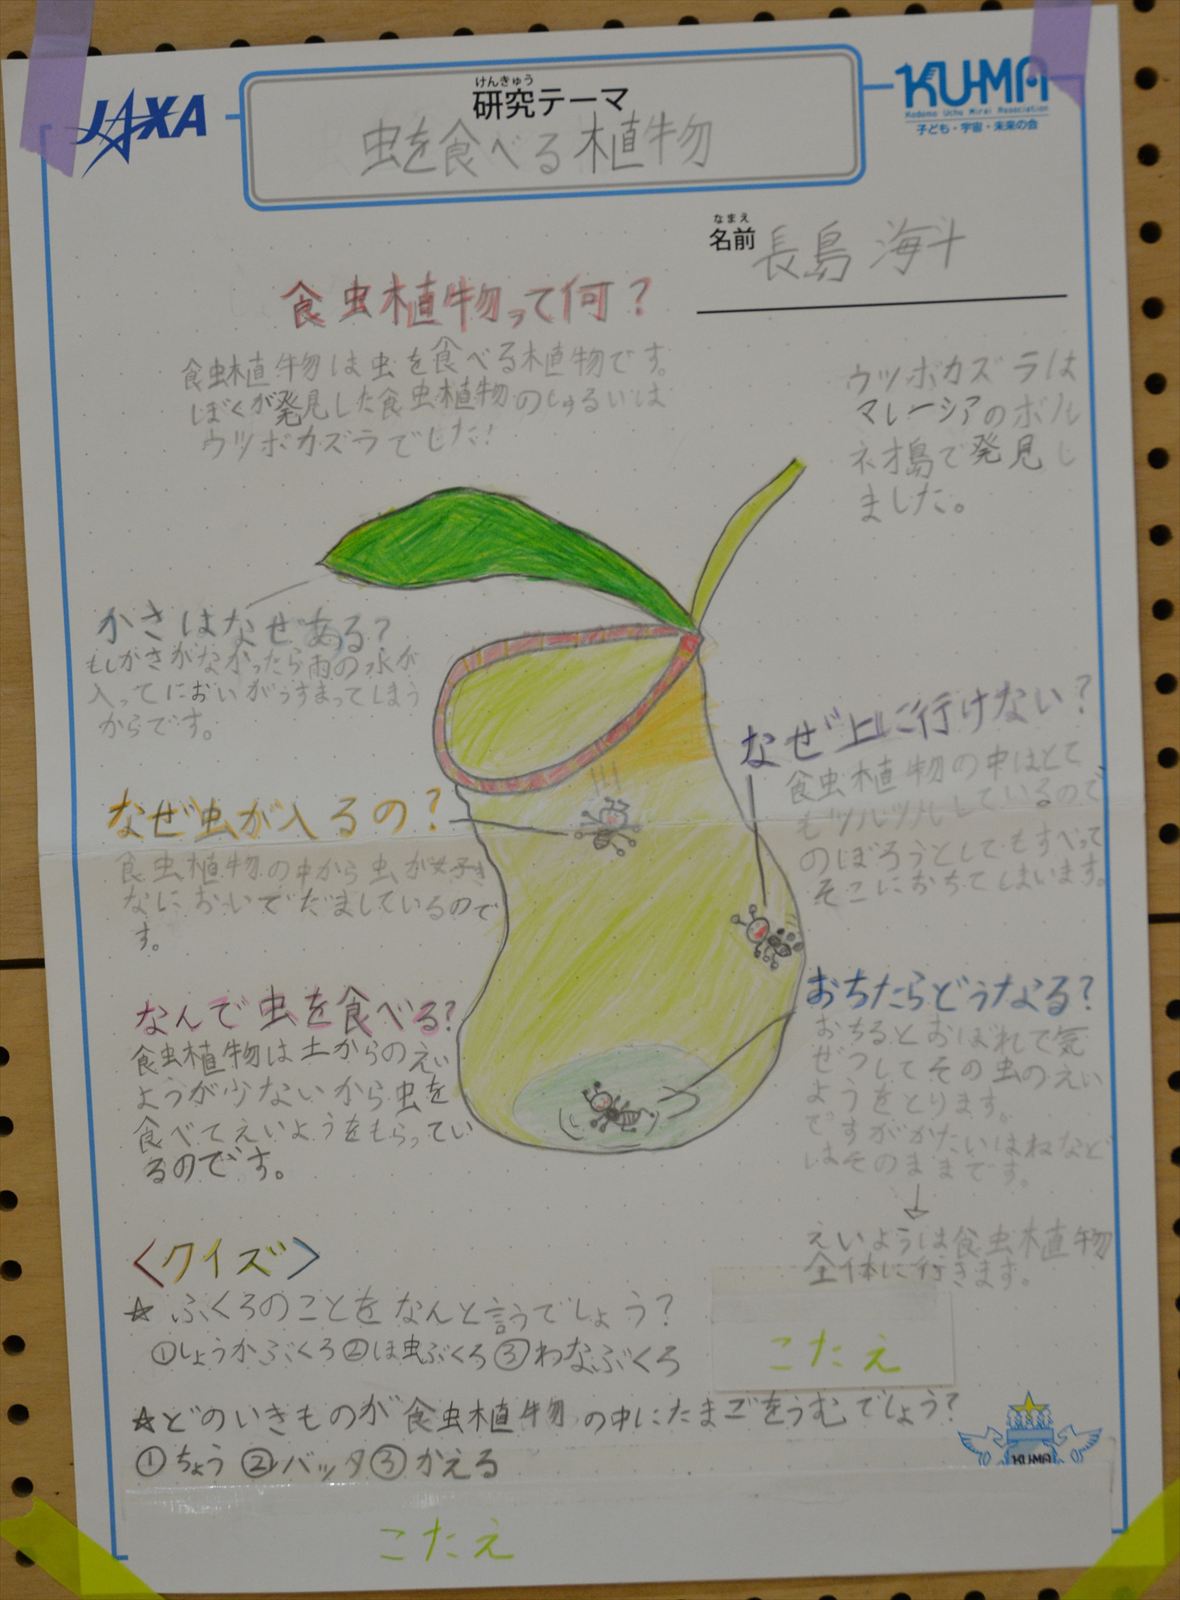 JAXA
けんきゅう
研究テーマ
虫を食べる植物
KU-MA
Kodomo Uchu Mirai Association
子ども・宇宙・未来の会
なまえ
名前
長島 海斗
食虫植物って何？
食虫植物は虫を食べる植物です。
ぼくが発見した食虫植物のしゅるいは
ウツボカズラでした！
ウツボカズラは
マレーシアのボル
ネオ島で発見し
ました。
かさはなぜある？
もしかさがなかったら雨の水が
入ってにおいがうすまってしまう
からです。
なぜ虫が入るの？
食虫植物の中から虫が好き
なにおいでだましているので
す。
なぜ上に行けない？
食虫植物の中はとて
もツルツルしているので
のぼろうとしてもすべって
そこにおちてしまいます。
なんで虫を食べる？
食虫植物は土からのえい
ようが少ないから虫を
食べてえいようをもらってい
るのです。
おちたらどうなる？
おちるとおぼれて気
ぜつしてその虫のえい
ようをとります。
ですがかたいはねなど
はそのままです。
↓
えいようは食虫植物
全体に行きます。
＜クイズ＞
☆ふくろのことをなんと言うでしょう？
①しょうかぶくろ②ほ虫ぶくろ③わなぶくろ
こたえ
☆どのいきものが食虫植物の中にたまごをうむでしょう？
①ちょう②バッタ③かえる
KU-MA
こたえ